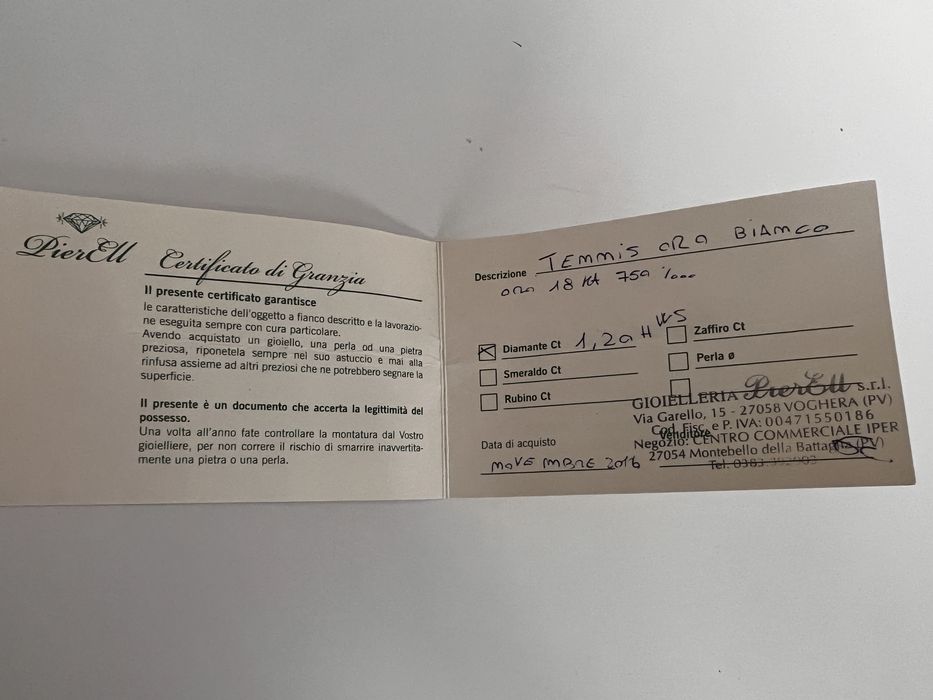 PierEll
Certificato di Granzia
Il presente certificato garantisce
le caratteristiche dell'oggetto a fianco descritto e la lavorazio-
ne eseguita sempre con cura particolare.
Avendo acquistato un gioiello, una perla od una pietra
preziosa, riponetela sempre nel suo astuccio e mai alla
rinfusa assieme ad altri preziosi che ne potrebbero segnare la
superficie.
Il presente è un documento che accerta la legittimità del
possesso.
Una volta all'anno fate controllare la montatura dal Vostro
gioielliere, per non correre il rischio di smarrire inavvertita-
mente una pietra o una perla.
Descrizione TENNIS ORO BIANCO
ORO 18 Kt 750 %00
Diamante Ct 1,20 H VVS
Smeraldo Ct
Rubino Ct
Zaffiro Ct
Perla ø
Data di acquisto
NOVEMBRE 2016
Venditore
GIOIELLERIA PierEll s.r.l.
Via Garello, 15 - 27058 VOGHERA (PV)
Cod. Fisc. e P. IVA: 00471550186
Negozio: CENTRO COMMERCIALE IPER
27054 Montebello della Battaglia (PV)
Tel. 0383